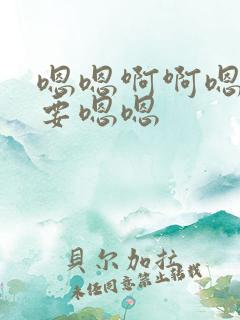 嗯嗯啊啊嗯
要嗯嗯
貝尔加拉
未经同意禁止转载